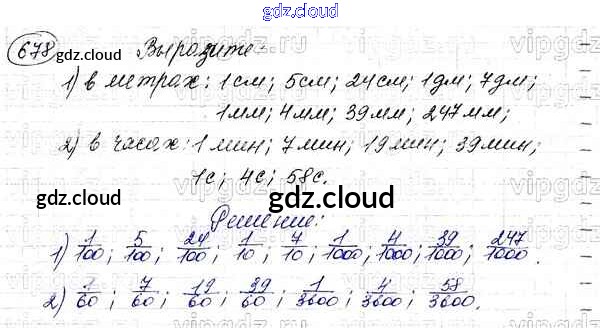 gdz.cloud
678 Выразите:
1) в метрах: 1см; 5см; 24см; 1дм; 7дм;
1мм; 4мм; 39мм; 247мм;
2) в часах: 1мин; 7мин; 19мин; 39мин;
1с; 4с; 58с.
gdz.cloud
gdz.cloud
gdz.cloud
Решение:
1) 1/100; 5/100; 24/100; 1/10; 7/10; 1/1000; 4/1000; 39/1000; 247/1000.
2) 1/60; 7/60; 19/60; 39/60; 1/3600; 4/3600; 58/3600.